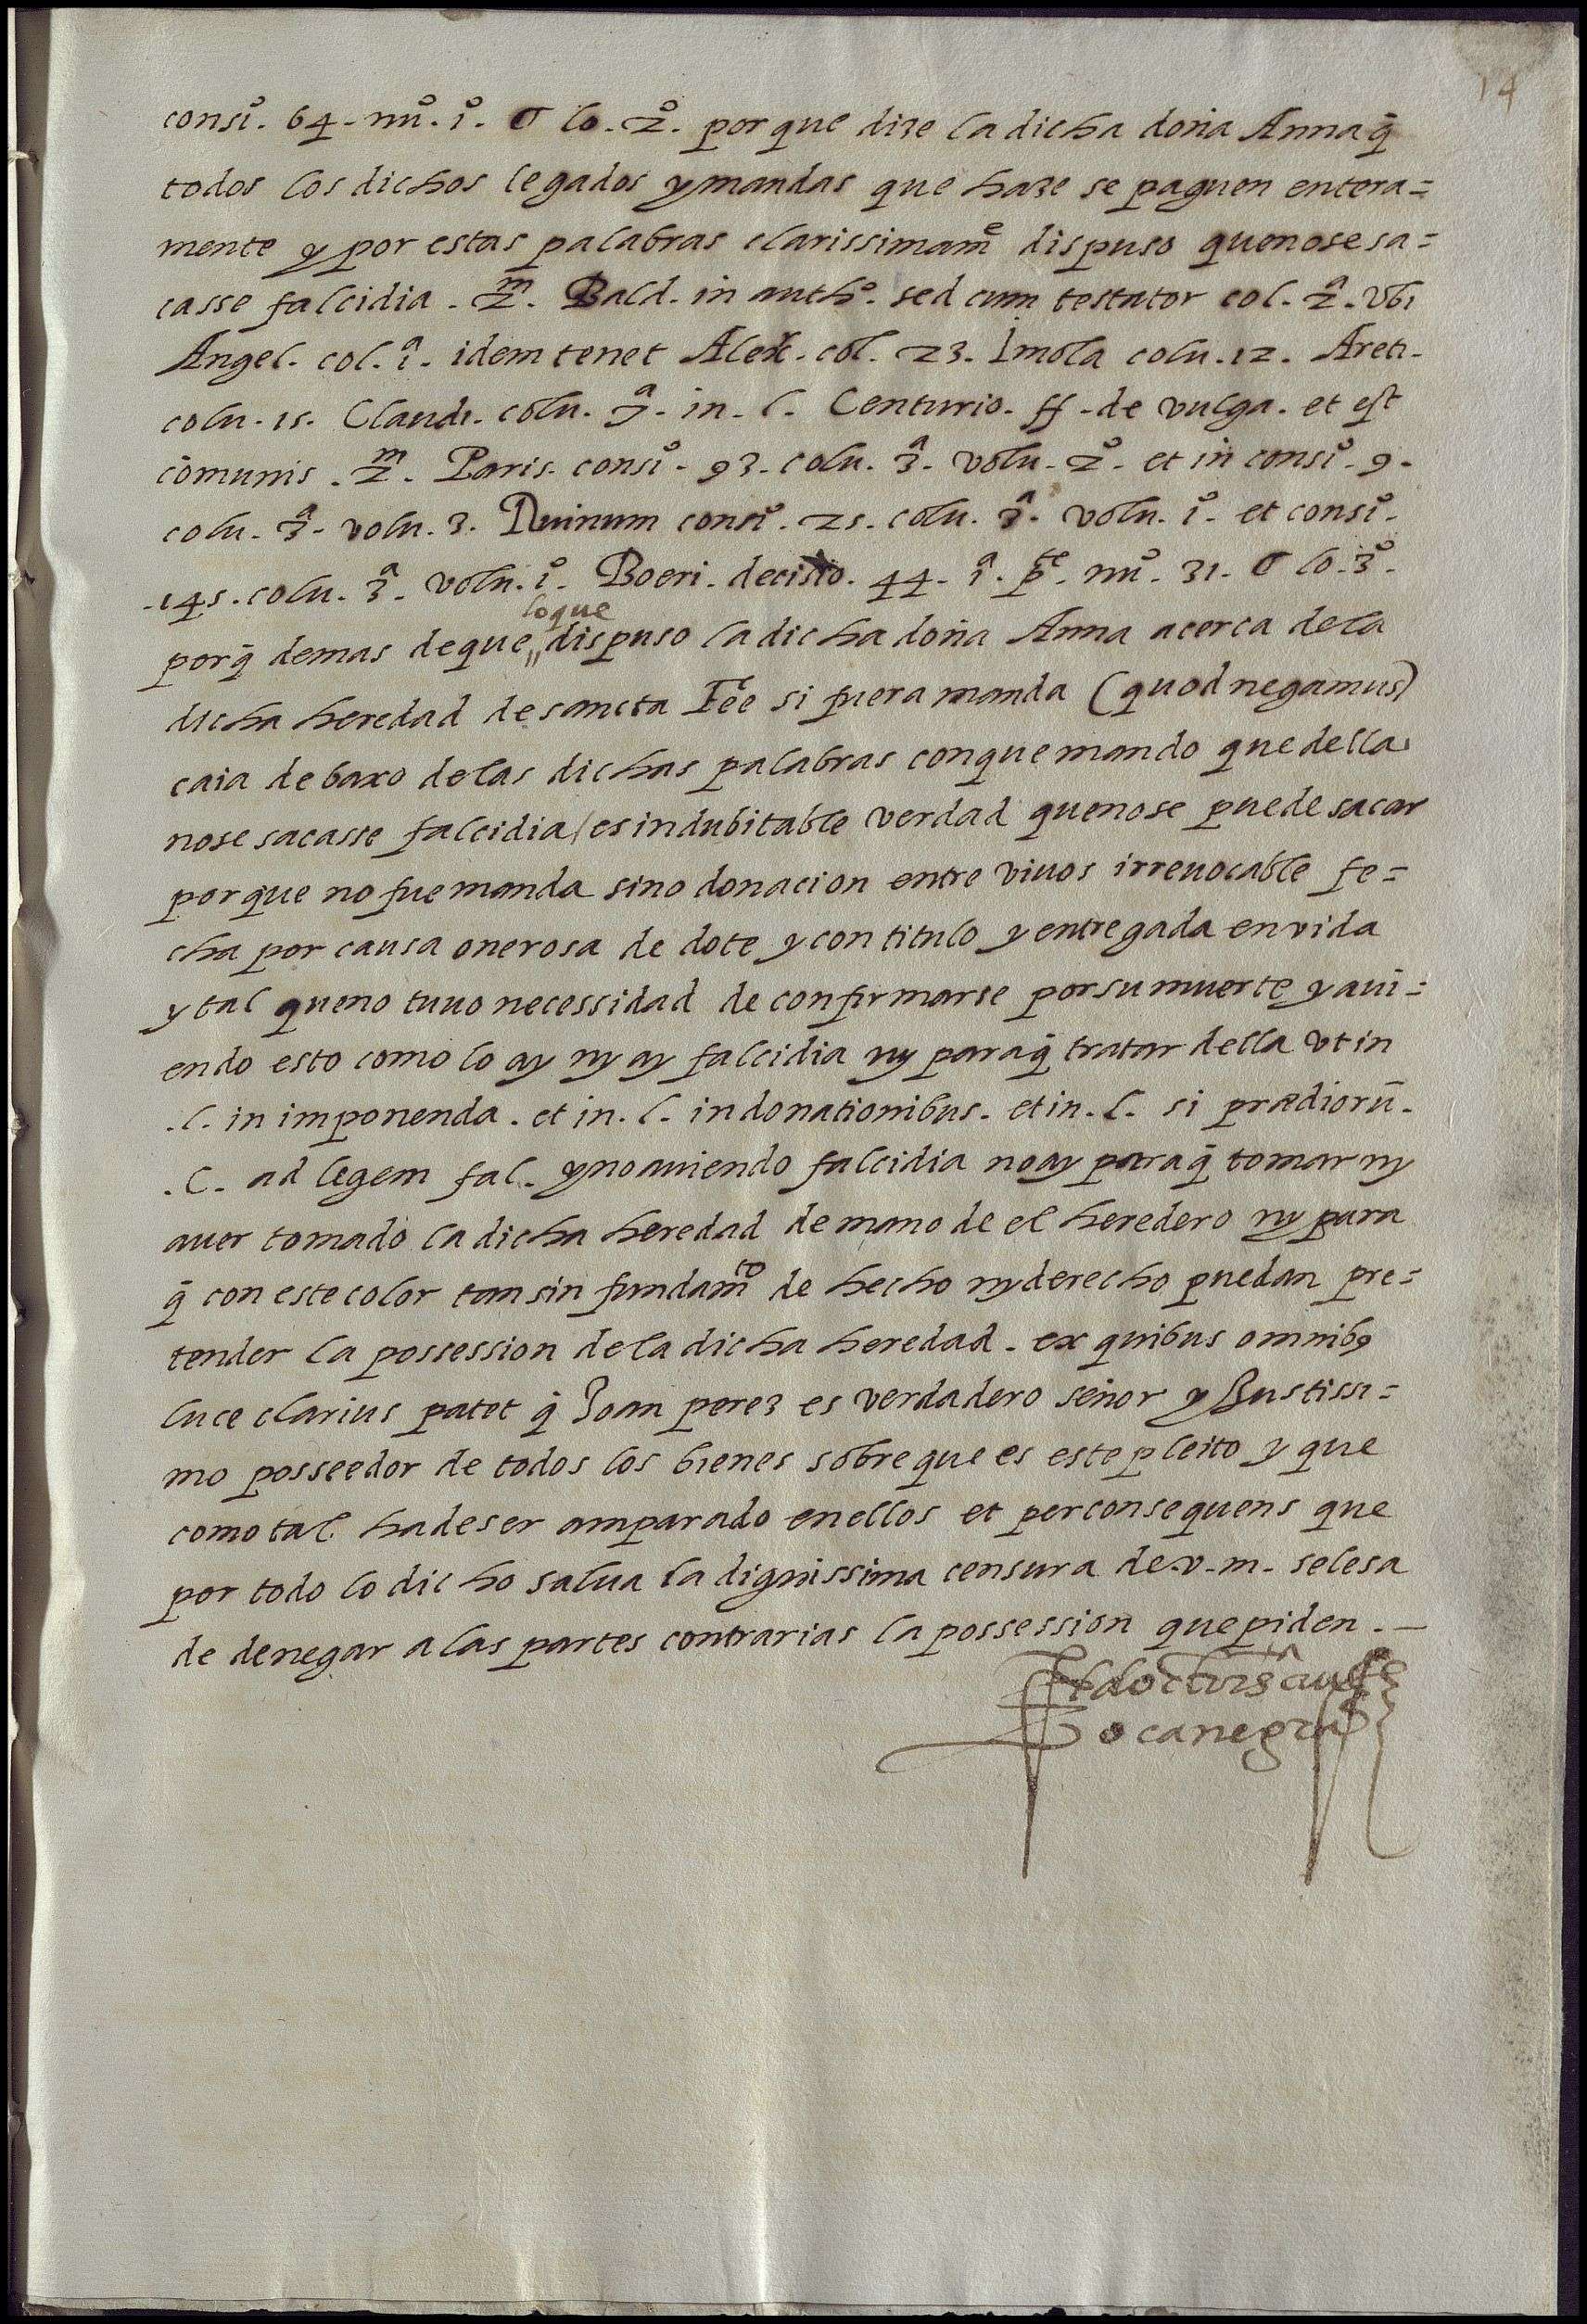 14
consiº. 64. nuº. iº. σ lo. 2º. por que dize la dicha doña Anna q̃
todos los dichos legados y mandas que haze se paguen entera=
mente y por estas palabras clarissimamᵉ dispuso que no se sa=
casse falcidia. 2ᵐ. Bald. in authº. sed cum testator col. 2ª. vbi
Angel. col. iª. idem tenet Alex. col. 23. Imola colu. 12. Areti.
colu. 15. Claudi. colu. 7ª. in. l. Centurio. ff. de vulga. et est
cōmunis. 2ᵐ. Paris. consiº. 93. colu. 3ª. volu. 2º. et in consiº. 9.
colu. 3ª. volu. 3. Ruinum consiº. 25. colu. 3ª. volu. iº. et consiº.
.145. colu. 3ª. volu. iº. Boeri. decisio. 44. iª. pᵗᵉ. nuº. 31. σ lo. 3º.
porq̃ demas de que lo que dispuso la dicha doña Anna acerca de la
dicha heredad de sancta Fee si fuera manda (quod negamus)
caia debaxo de las dichas palabras con que mando que della
no se sacasse falcidia / es indubitable verdad que no se puede sacar
porque no fue manda sino donacion entre viuos irreuocable fe=
cha por causa onerosa de dote y con titulo y entregada en vida
y tal que no tuuo necessidad de confirmarse por su muerte y aui=
endo esto como lo ay ny ay falcidia ny paraq̃ tratar della vt in
.l. in imponenda. et in. l. in donationibus. et in. l. si prædiorū.
.C. ad legem fal. y no auiendo falcidia no ay paraq̃ tomar ny
auer tomado la dicha heredad de mano de el heredero ny para
q̃ con este color tan sin fundamᵗº de hecho ny derecho puedan pre=
tender la possession de la dicha heredad. ex quibus omnibꝰ
luce clarius patet q̃ Joan perez es verdadero señor y Justissi=
mo posseedor de todos los bienes sobre que es este pleito y que
como tal ha de ser amparado en ellos et per consequens que
por todo lo dicho salua la dignissima censura de. v. m. se les a
de denegar a las partes contrarias la possession que piden. —
El doctor
Bocanegra